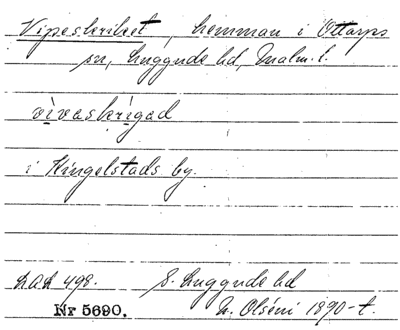 Vipeskriket, hemman i Ottarps
sn, Luggude hd, Malm. l.
vivaskrigad
i Kingelstads by.
LAL 498. S. Luggude hd
Nr 5690. N. Olséni 1890-t.